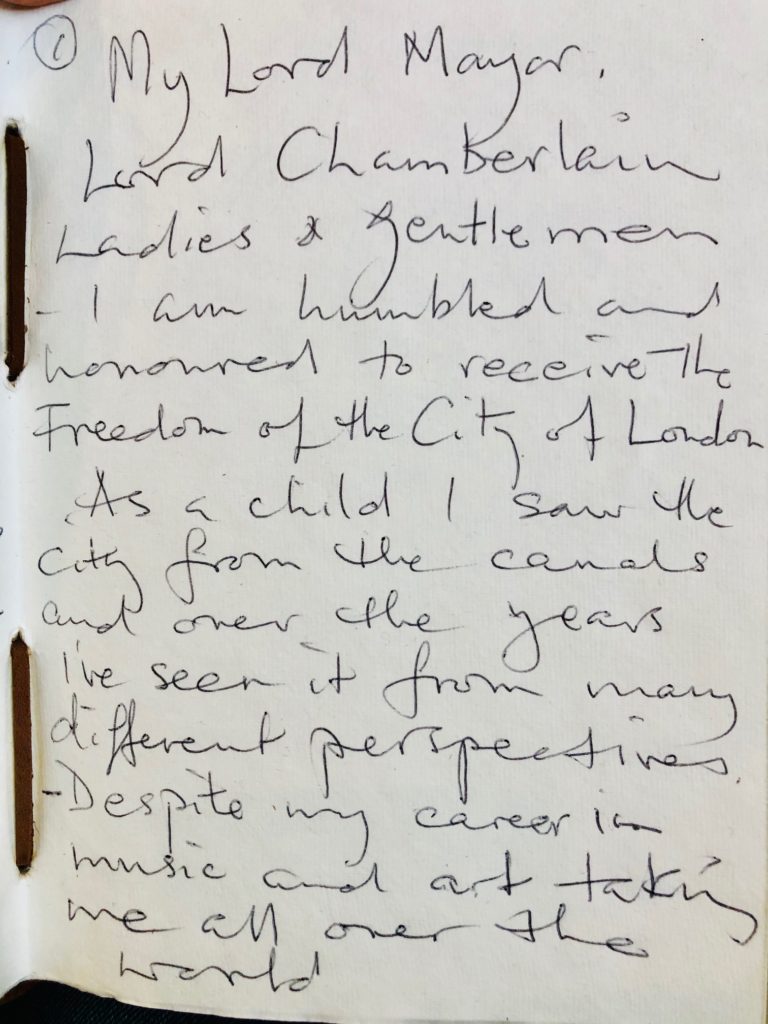 1
My Lord Mayor.
Lord Chamberlain
Ladies & gentlemen
- I am humbled and
honoured to receive the
Freedom of the City of London
As a child I saw the
city from the canals
and over the years
I've seen it from many
different perspectives.
- Despite my career in
music and art taking
me all over the
world